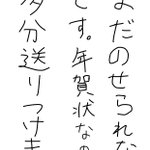 まだのせられな
です。年賀状なの
多分送りつけま